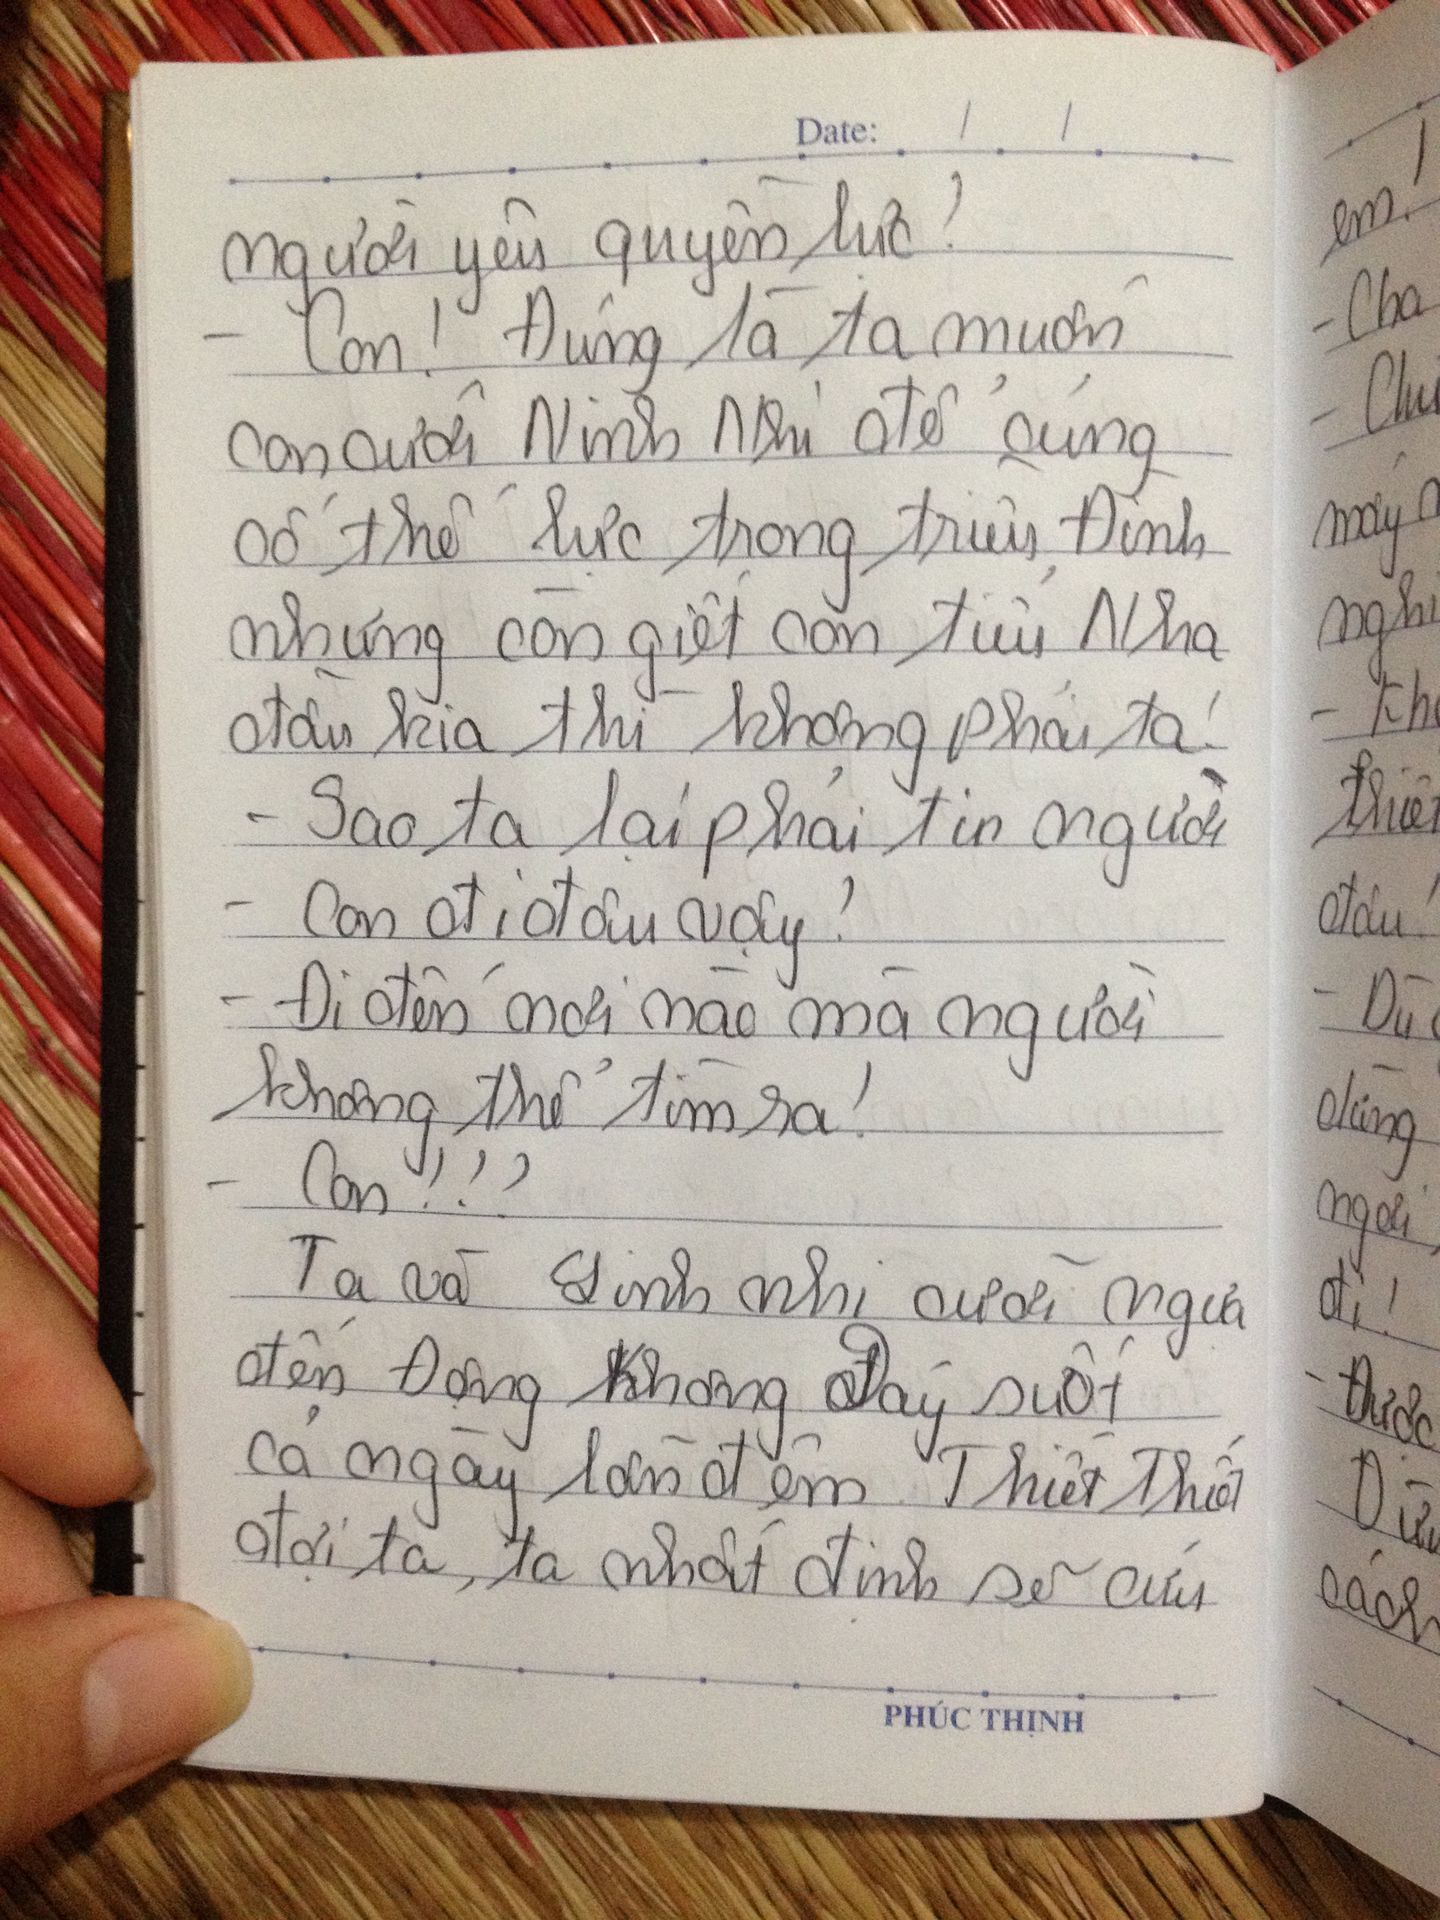 Date: / /
người yêu quyền lực!
- Con! Đúng là ta muốn
con cưới Ninh Nhi để củng
cố thế lực trong triều Đình
nhưng còn giết con tiểu Nha
đầu kia thì không phải ta!
- Sao ta lại phải tin người
- Con đi đâu vậy!
- Đi đến nơi nào mà người
không thể tìm ra!
- Con!!!
Ta và Đinh nhi cưỡi ngựa
đến Động Không Đáy suốt
cả ngày lẫn đêm Thiết Thiết
đợi ta, ta nhất định sẽ cứu
PHÚC THỊNH
em!
- Cha
-
máy
- Kh
đâu!
- Dù
dùng
ngơi,
đi!
- Được
cách